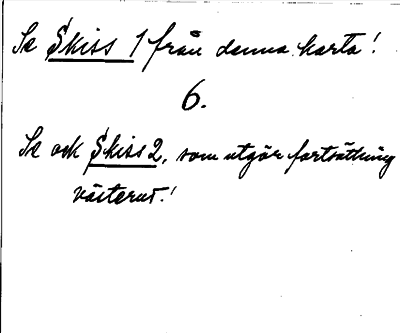 Se Skiss 1 från denna karta!
6.
Se ock Skiss 2, som utgör fortsättning
västerut!